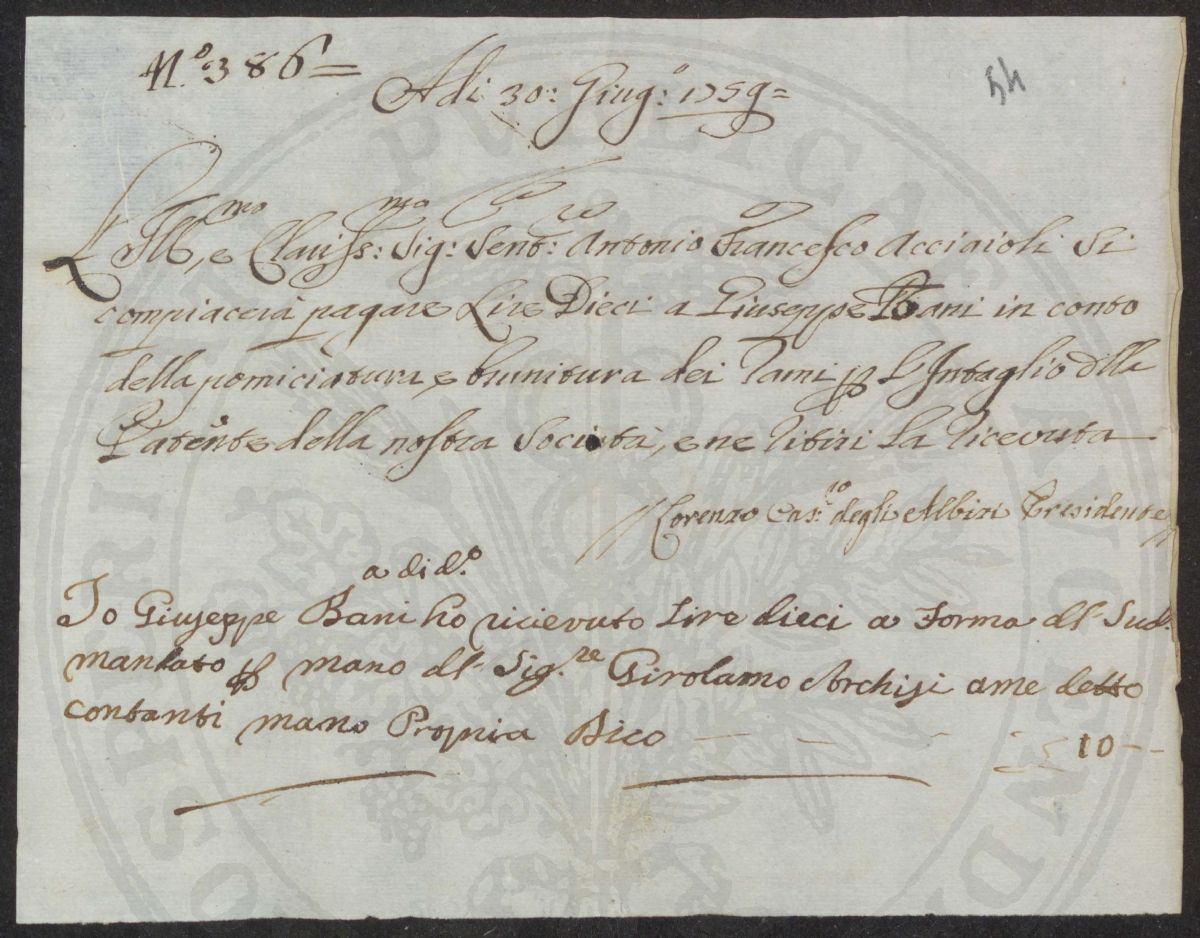 N.º 386=
54
Adi 30: Giug:º 1759=
L'Ill.mo, e Clariss:mo Sig: Sen:re Antonio Francesco Acciaioli Si
compiacerà pagare Lire Dieci a Giuseppe Bani in conto
della pomiciatura, e brunitura dei Rami p L'Intaglio dlla
Patente della nostra Società, e ne ritiri La ricevuta
Lorenzo Gas.ro degli Albizi Presidente
a di d.º
Io Giuseppe Bani ho ricievuto Lire dieci a Forma dl Sud.
mandato p mano dl Sig.re Girolamo Archisi ame detto
contanti mano Propria Dico — — — 10 --
PVBLICAE